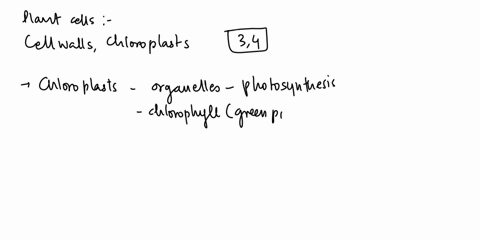 Plant cells :-
Cell walls, chloroplasts 3,4
→ Chloroplasts - organelles - photosynthesis
- chlorophyll (green p